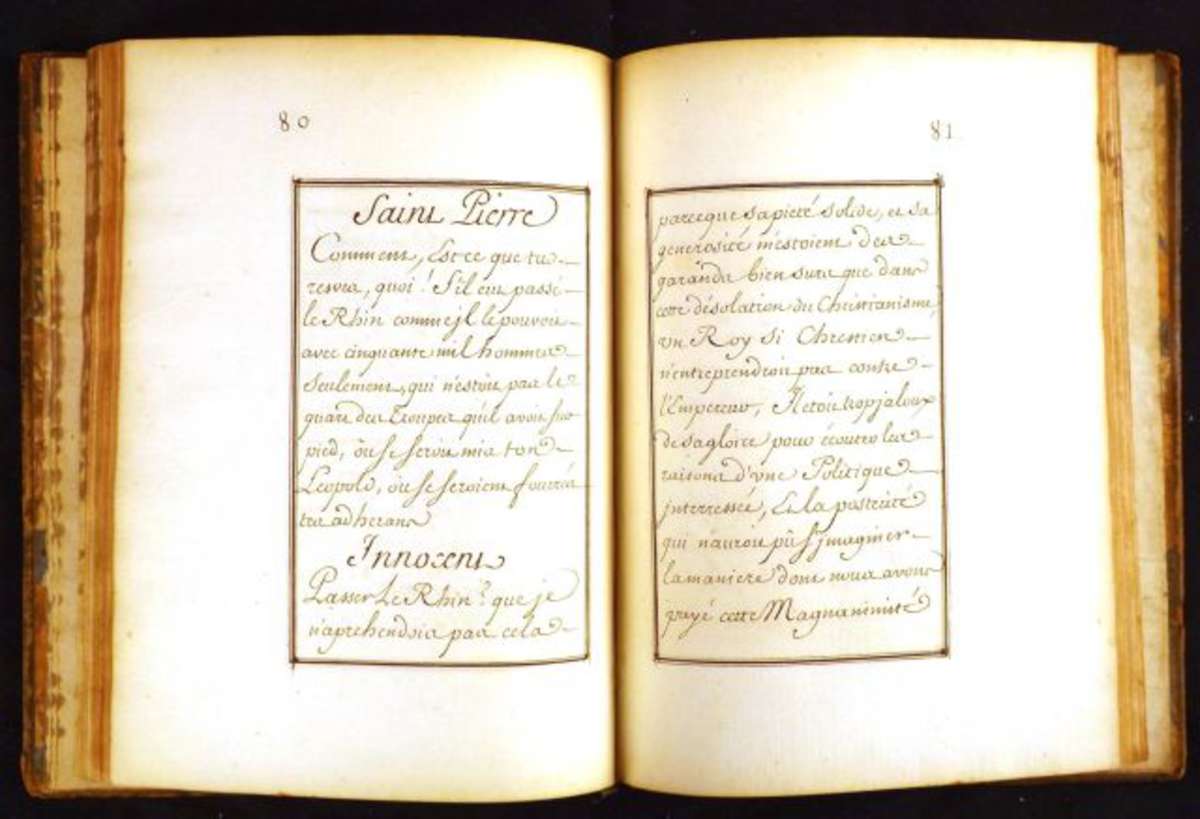 80
Saint Pierre
Comment, Est ce que tu
resves, quoi! S'il eut passé
le Rhin comme jl le pouvoit
avec cinquante mil hommes
seulement, qui n'estoit pas le
quart des Troupes qu'il avoit sur
pied, où se seroit mis ton
Leopold, où se seroient fourés
tes adherans
Innocent
Passer Le Rhin? que je
n'aprehendois pas cela
81
parceque sa pieté solide, et sa
generosité m'estoient des
garands bien surs que dans
cette désolation du Christianisme,
vn Roy si Chrestien
n'entreprendroit pas contre
l'Empereur, Il etoit trop jaloux
de sa gloire pour écouter les
raisons d'vne Politique
jnterressée, Et la posterité
qui n'auroit pû s'jmaginer
la maniere dont nous avons
payé cette Magnanimité